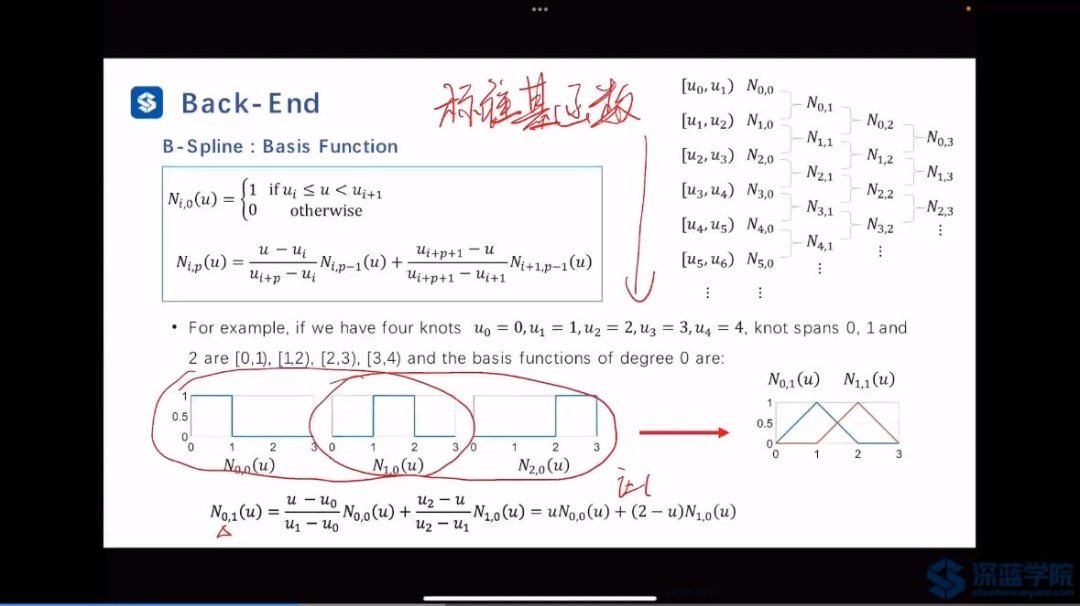 Back-End
标准基函数
B-Spline : Basis Function
N_{i,0}(u) = {1 if u_i ≤ u < u_{i+1}
0 otherwise
N_{i,p}(u) = \frac{u − u_i}{u_{i+p} − u_i} N_{i,p−1}(u) + \frac{u_{i+p+1} − u}{u_{i+p+1} − u_{i+1}} N_{i+1,p−1}(u)
[u_0, u_1) N_{0,0}
N_{0,1}
[u_1, u_2) N_{1,0} N_{0,2}
N_{1,1} N_{0,3}
[u_2, u_3) N_{2,0} N_{1,2}
N_{2,1} N_{1,3}
[u_3, u_4) N_{3,0} N_{2,2}
N_{3,1} N_{2,3}
[u_4, u_5) N_{4,0} N_{3,2} ⋮
N_{4,1} ⋮
[u_5, u_6) N_{5,0} ⋮
⋮ ⋮
• For example, if we have four knots u_0 = 0, u_1 = 1, u_2 = 2, u_3 = 3, u_4 = 4, knot spans 0, 1 and
2 are [0,1), [1,2), [2,3), [3,4) and the basis functions of degree 0 are:
1
0.5
0
0 1 2 3
N_{0,0}(u)
0 1 2 3
N_{1,0}(u)
0 1 2 3
N_{2,0}(u)
N_{0,1}(u) N_{1,1}(u)
1
0.5
0
0 1 2 3
N_{0,1}(u) = \frac{u − u_0}{u_1 − u_0} N_{0,0}(u) + \frac{u_2 − u}{u_2 − u_1} N_{1,0}(u) = uN_{0,0}(u) + (2 − u)N_{1,0}(u)
深蓝学院